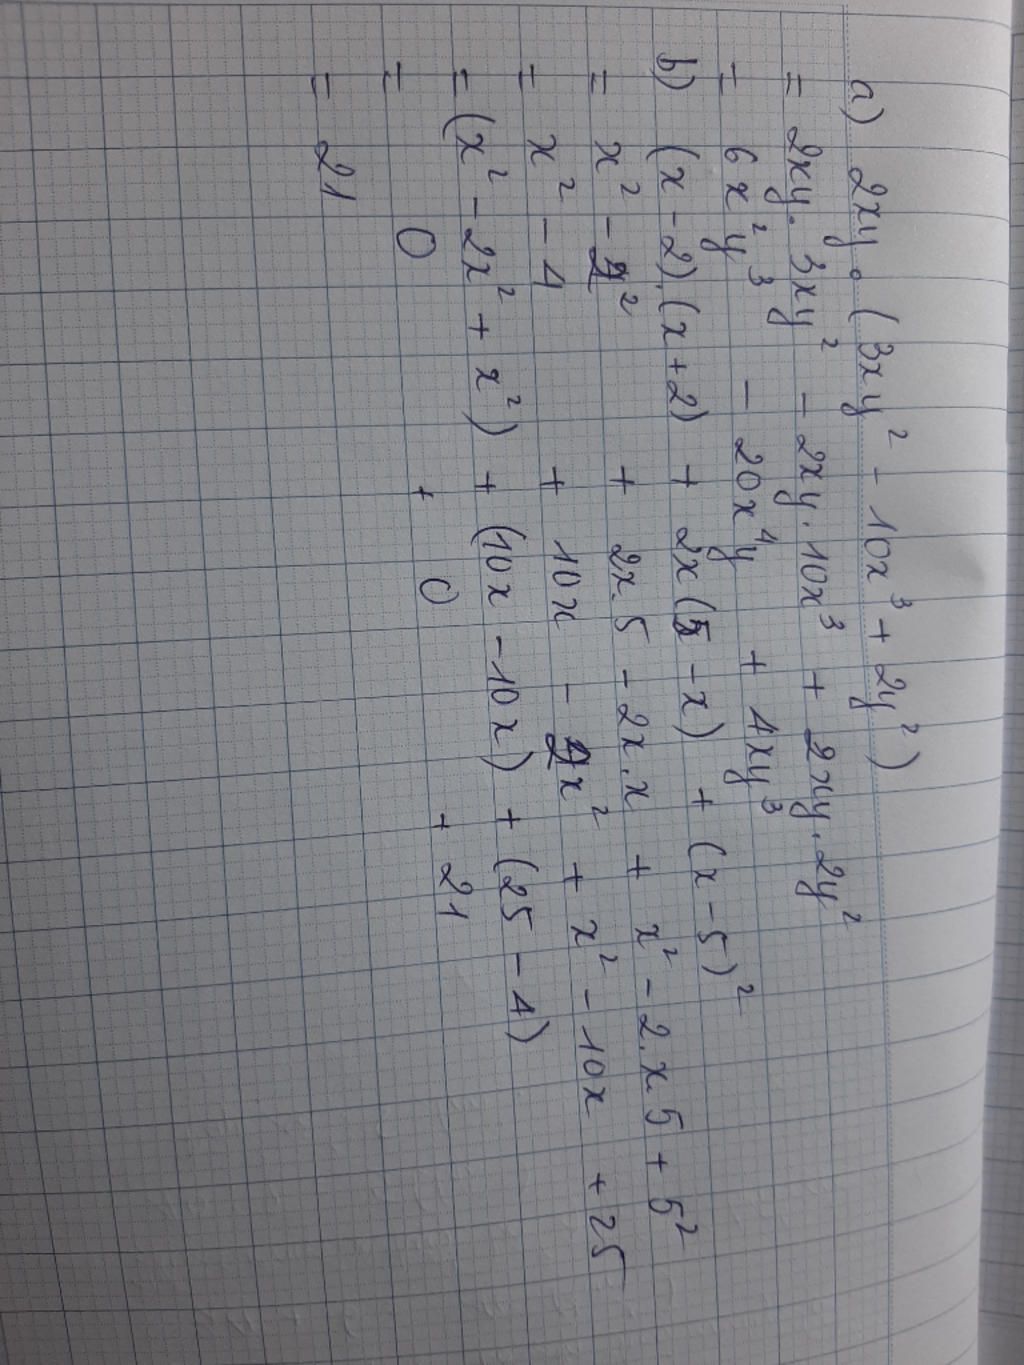 a) 2xy . (3xy² - 10x³ + 2y²)
= 2xy . 3xy² - 2xy . 10x³ + 2xy . 2y²
= 6x²y³ - 20x⁴y + 4xy³
b) (x - 2).(x + 2) + 2x(5 - x) + (x - 5)²
= x² - 2² + 2x.5 - 2x.x + x² - 2.x.5 + 5²
= x² - 4 + 10x - 2x² + x² - 10x + 25
= (x² - 2x² + x²) + (10x - 10x) + (25 - 4)
= 0 + 0 + 21
= 21